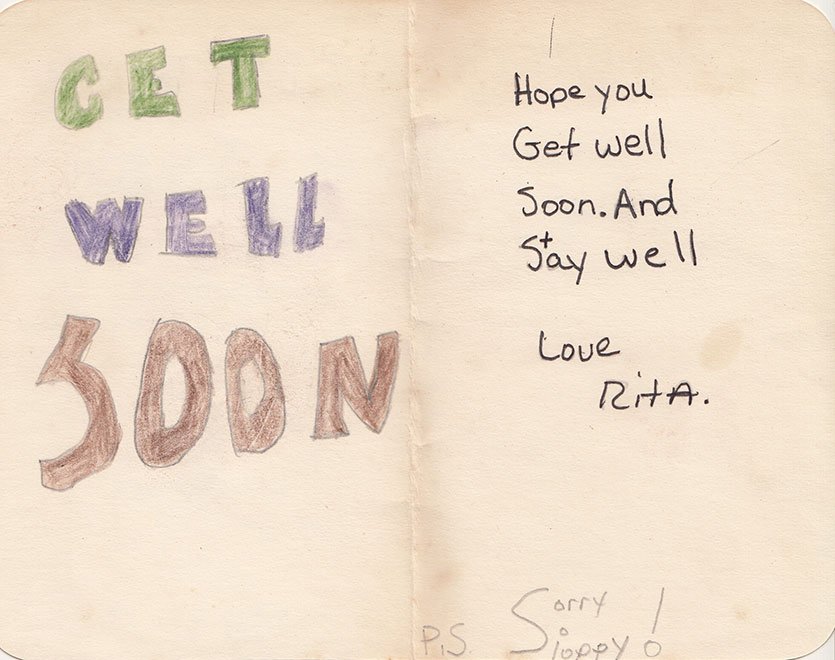 GET
WELL
SOON
Hope you
Get well
Soon. And
Stay well
Love
RitA.
P.S. Sorry
Sloppy!